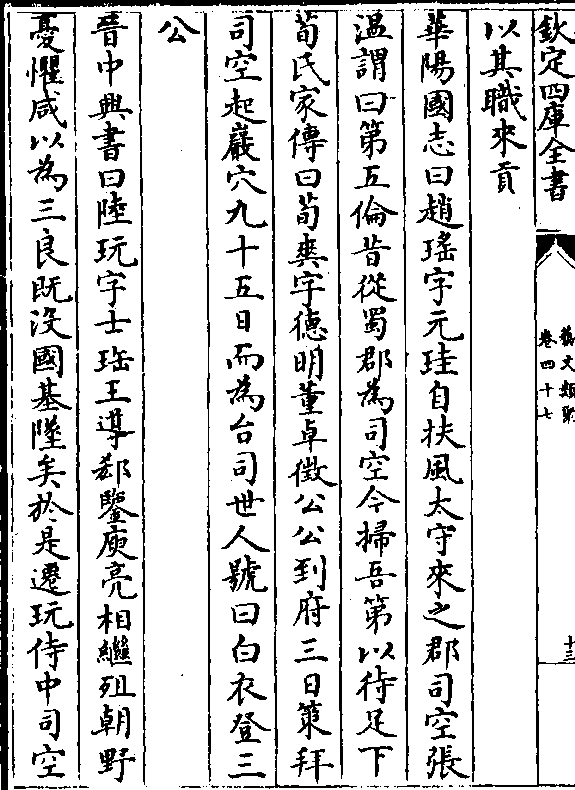 欽定四庫全書
藝文類聚
卷四十七
十三
以其職來貢
華陽國志曰趙瑤字元珪自扶風太守來之郡司空張
温謂曰第五倫昔從蜀郡為司空今掃吾第以待足下
荀氏家傳曰荀爽字德明董卓徵公公到府三日策拜
司空起巖穴九十五日而為台司世人號曰白衣登三
公
晉中興書曰陸玩字士瑶王導郄鑒庾亮相繼殂朝野
憂懼咸以為三良既没國基墜矣於是遷玩侍中司空